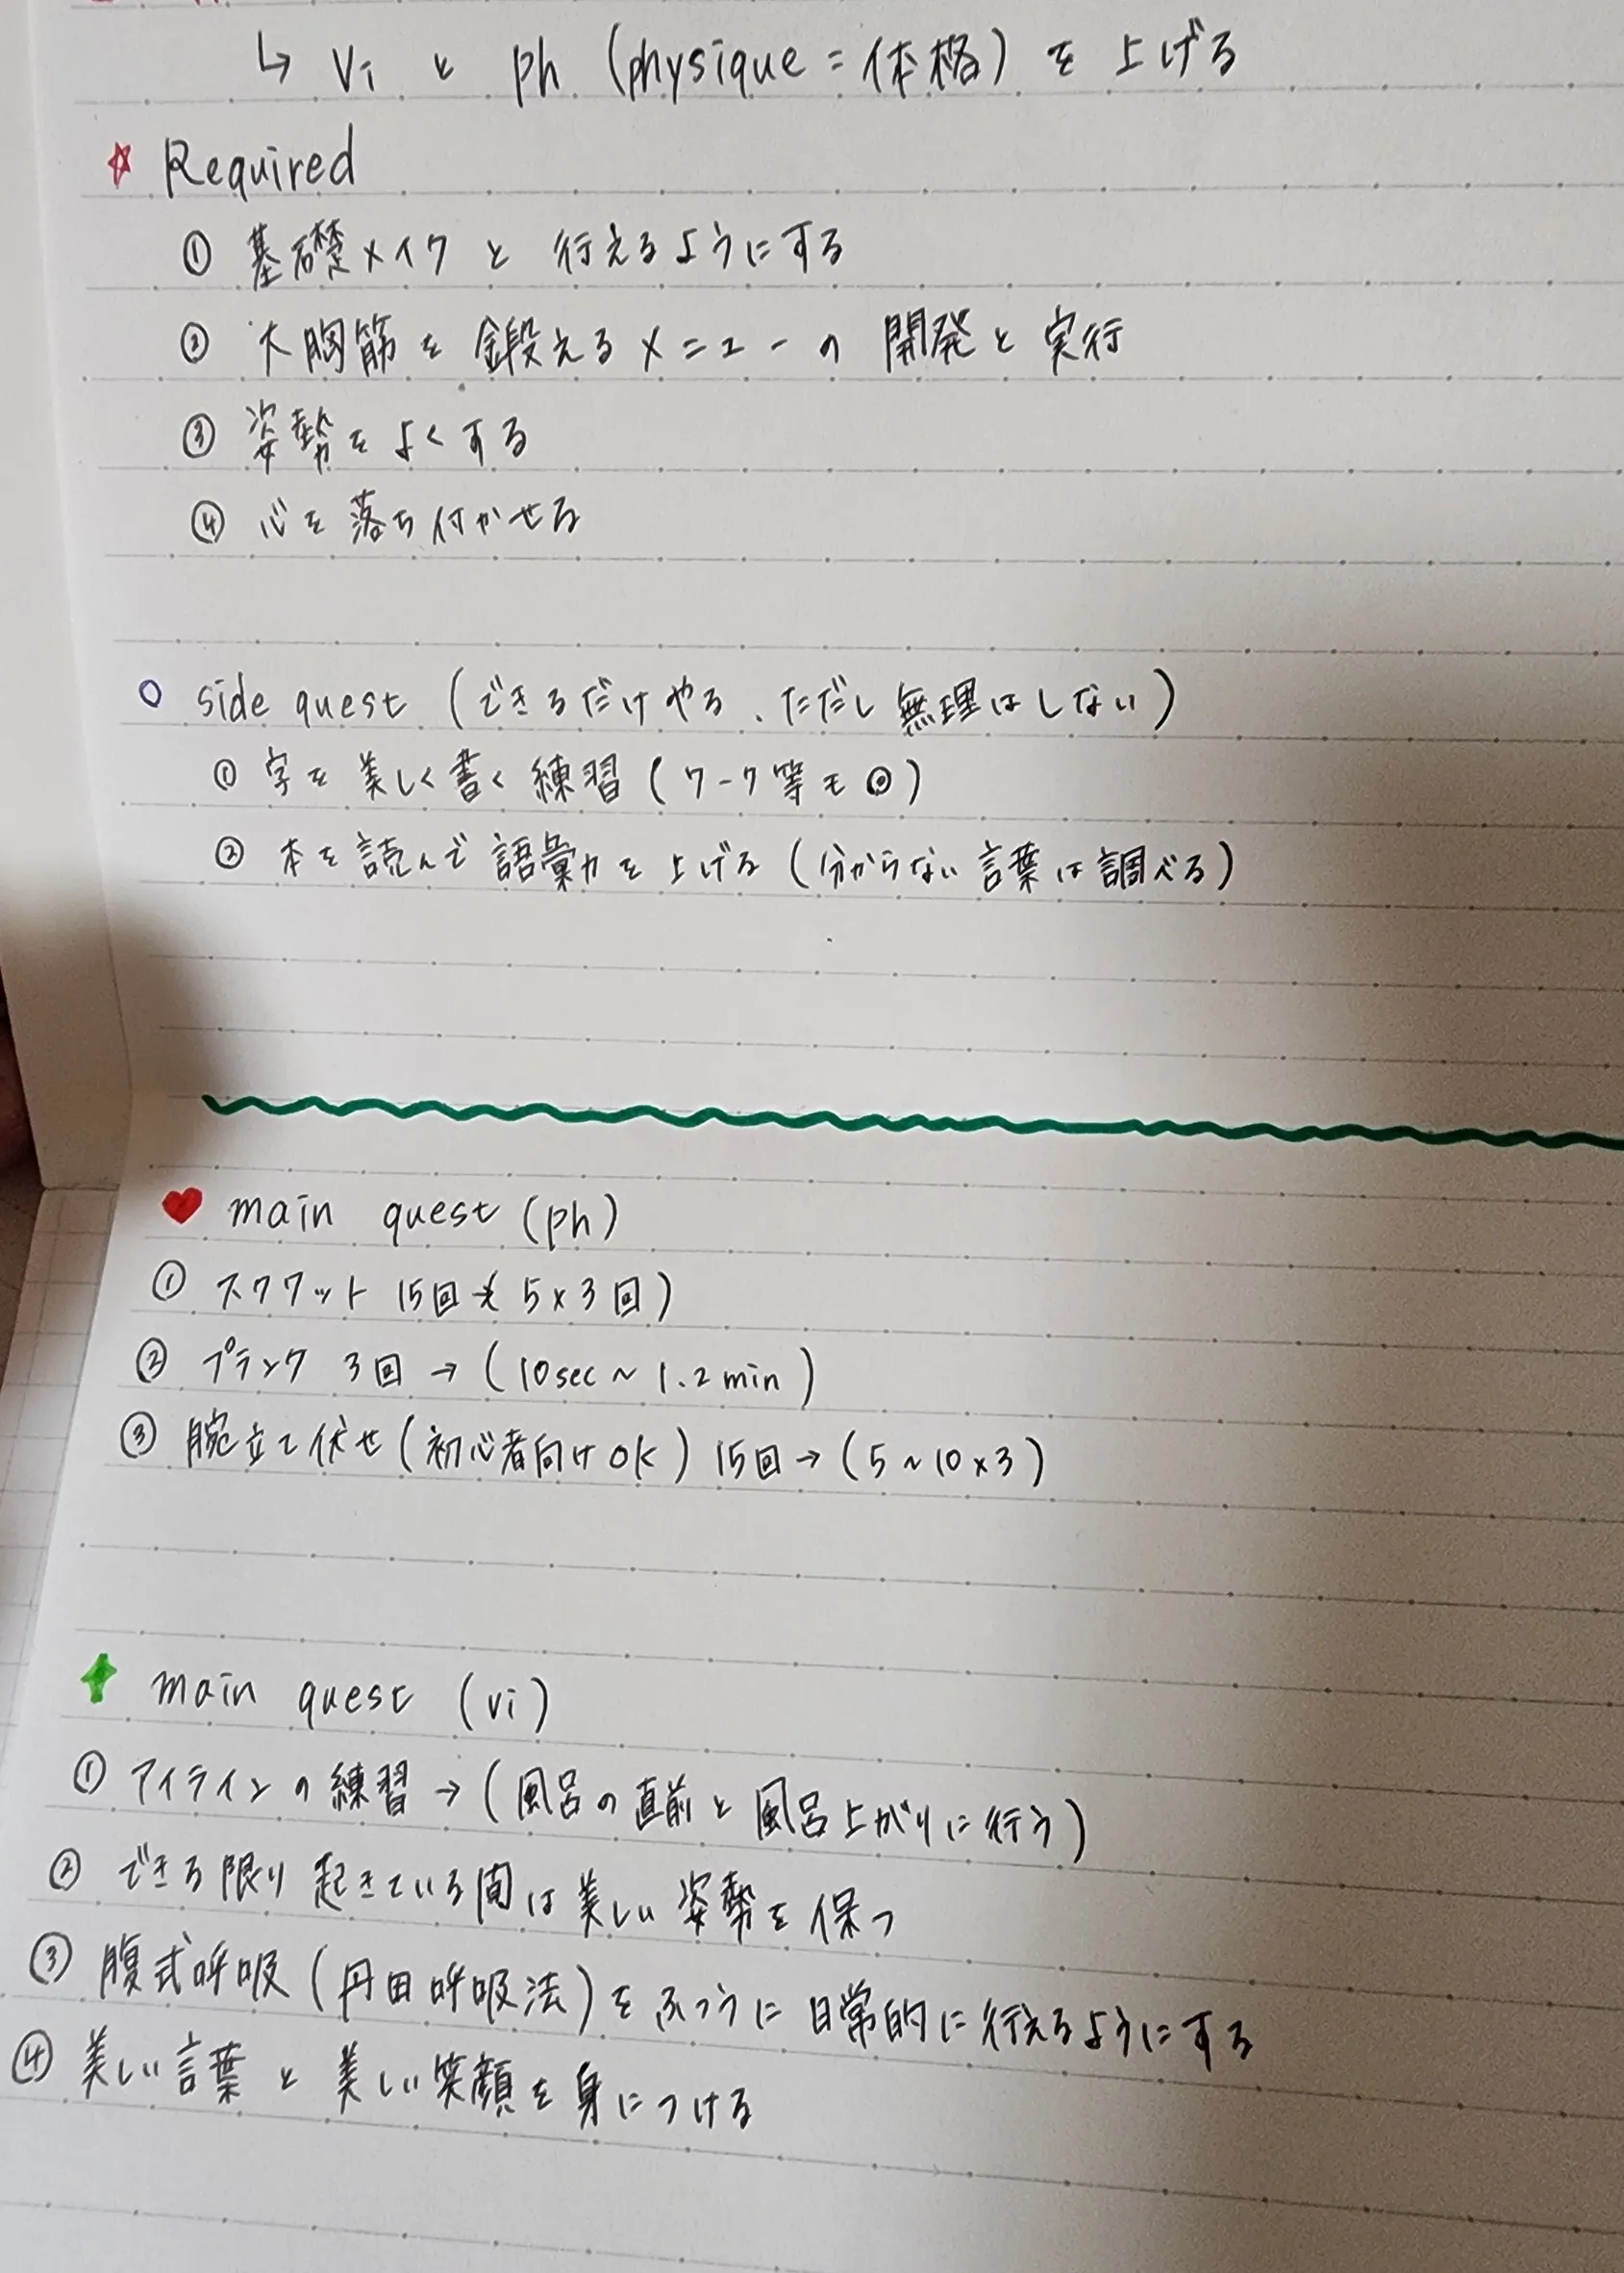 ↳ Vi と ph (physique = 体格) を 上げる
☆ Required
① 基礎メイク と 行えるようにする
② 大胸筋を 鍛えるメニューの 開発と 実行
③ 姿勢をよくする
④ 心を落ち付かせる
○ side quest (できるだけやる、ただし無理はしない)
① 字を美しく書く練習 (ワーク等も◎)
② 本を読んで語彙力を上げる (分からない言葉は調べる)
♥ main quest (ph)
① スクワット 15回 ( 5×3回)
② プランク 3回 → (10sec ~ 1.2min)
③ 腕立て伏せ (初心者向けOK) 15回 → (5~10×3)
main quest (vi)
① アイラインの練習 → (風呂の直前と風呂上がりに行う)
② できる限り起きている間は美しい姿勢を保つ
③ 腹式呼吸 (丹田呼吸法) をふつうに日常的に行えるようにする
④ 美しい言葉と美しい笑顔を身につける